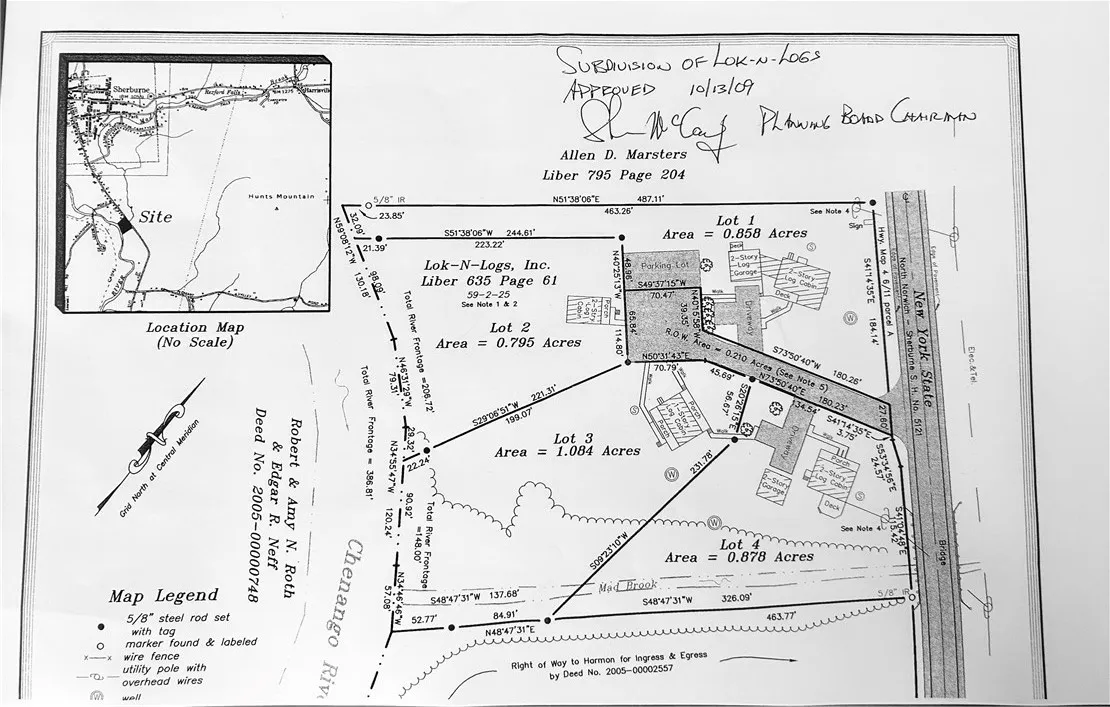 SUBDIVISION OF LOK-N-LOGS
APPROVED 10/13/09
PLANNING BOARD CHAIRMAN
Allen D. Marsters
Liber 795 Page 204
Sherburne
Rexford Falls
Harrisville
Hunts Mountain
Site
Location Map
(No Scale)
5/8" IR
23.85'
N51°38'06"E 487.11'
463.26'
See Note 4
Sign
32.09'
N59°08'12"W
130.18'
98.09'
21.39'
S51°38'06"W 244.61'
223.22'
Lot 1
Area = 0.858 Acres
Lok-N-Logs, Inc.
Liber 635 Page 61
59-2-25
See Note 1 & 2
Lot 2
Area = 0.795 Acres
N40°25'13"W
48.96
65.84'
114.80'
Parking Lot
S49°37'15"W
70.47'
N40°15'58"W
39.35'
Deck
2-Story
Log
Garage
2-Story
Log Cabin
Deck
Walk
Driveway
Porch
2-Story
Log
Cabin
R.O.W. Area = 0.210 Acres (See Note 5)
S73°50'40"W 180.26'
N50°31'43"E
70.79'
45.69'
N73°50'40"E
180.23'
134.54'
27.60'
S41°14'35"E
3.75'
S53°34'56"E
24.57'
S41°14'35"E 184.14'
Hwy. Map 4 6/11 parcel A
North Norwich - Sherburne S. H. No. 5121
New York State
Edge of Pavement
Elec.&Tel.
Total River Frontage =206.72'
N46°31'29"W
79.31'
29.32'
Total River Frontage = 386.81'
S29°06'51"W 221.31'
199.07'
22.24'
N34°55'47"W
120.24'
90.92'
Total River Frontage
=148.00'
Lot 3
Area = 1.084 Acres
Walk
Porch
2-Story
Log Cabin
Porch
Walk
S20°26'15"E
56.67'
231.78'
S09°23'10"W
Driveway
Walk
Porch
2-Story
Log Cabin
Deck
2-Story
Garage
See Note 4
S41°04'48"E
115.42'
Lot 4
Area = 0.878 Acres
Bridge
Mad Brook
5/8" IR
N34°46'46"W
57.08'
S48°47'31"W 137.68'
S48°47'31"W 326.09'
52.77'
84.91'
N48°47'31"E
463.77'
Right of Way to Harmon for Ingress & Egress
by Deed No. 2005-00002557
Chenango Riv
Grid North at Central Meridian
Robert & Amy N. Roth
& Edgar R. Neff
Deed No. 2005-00000748
Map Legend
5/8" steel rod set
with tag
marker found & labeled
wire fence
utility pole with
overhead wires
W well